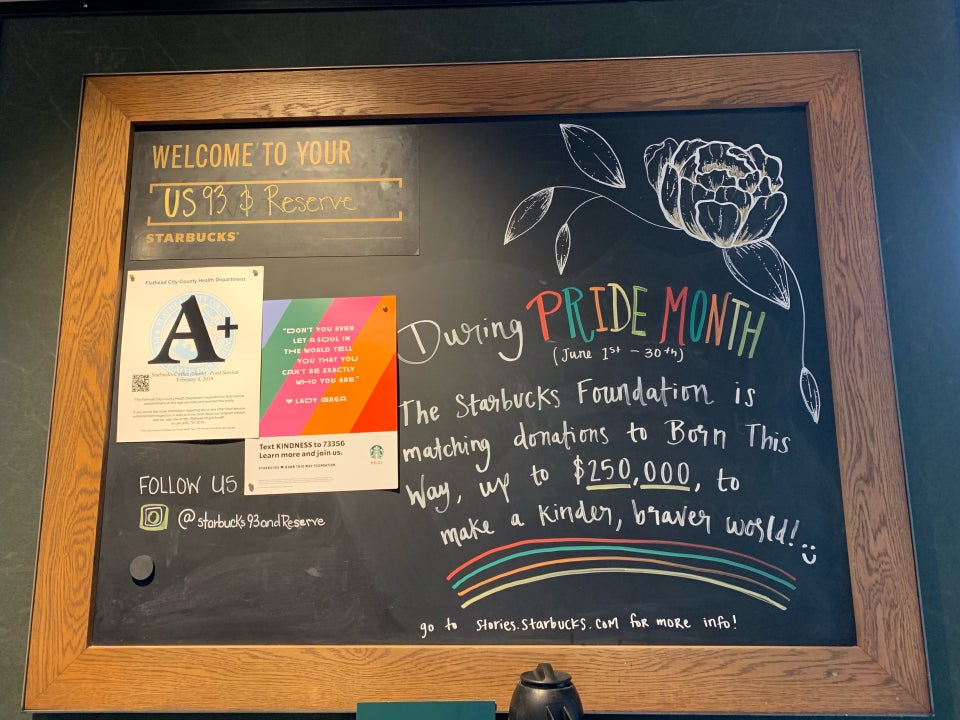 WELCOME TO YOUR
US 93 & Reserve
STARBUCKS®
Flathead City-County Health Department
A+
Food Service
February 4, 2019
"DON'T YOU EVER
LET A SOUL IN
THE WORLD TELL
YOU THAT YOU
CAN'T BE EXACTLY
WHO YOU ARE."
♥ LADY GAGA
Text KINDNESS to 73356
Learn more and join us.
STARBUCKS ♥ BORN THIS WAY FOUNDATION
FOLLOW US
@starbucks93andReserve
During PRIDE MONTH
(June 1st - 30th)
The Starbucks Foundation is
matching donations to Born This
Way, up to $250,000, to
make a kinder, braver world!
go to stories.starbucks.com for more info!